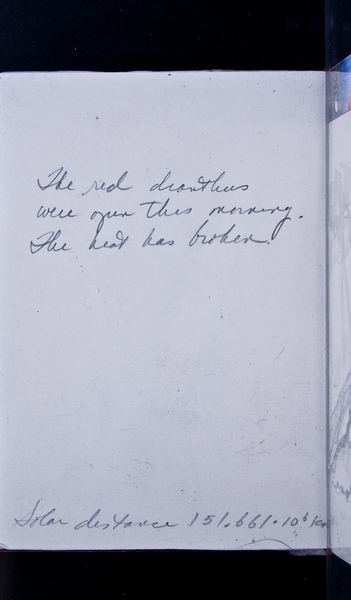 The red dianthus
were open this morning.
The heat has broken.
Solar distance 151.661.10⁶ km